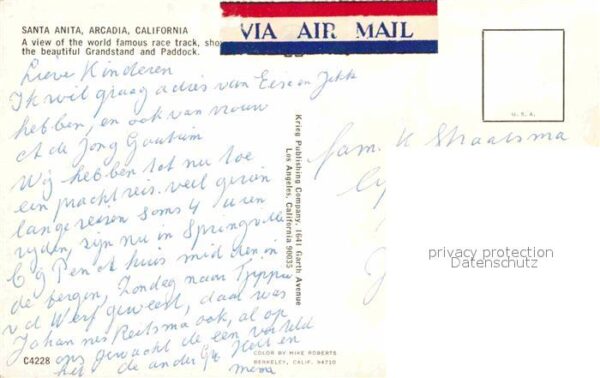 SANTA ANITA, ARCADIA, CALIFORNIA
A view of the world famous race track, sho
the beautiful Grandstand and Paddock.
VIA AIR MAIL
Lieve Kinderen
Ik wil graag adres van Eise en Jikke
hebben, en ook van vrouw
A de Jong Goutum
Wij hebben tot nu toe
een pracht reis. veel gezien
lange reizen soms 4 uren
rijden, zijn nu in Springville
bij P en A huis midden in
de bergen, Zondag naar
v d Werf geweest, daar was
Johannes Reitsma ook, al op
ons gewacht de een vertelde
het de ander Gr Heit en
mema
C4228
COLOR BY MIKE ROBERTS
BERKELEY, CALIF. 94710
Krieg Publishing Company, 1641 Garth Avenue
Los Angeles, California 90035
U.S.A.
Fam. K Straatsma
privacy protection
Datenschutz